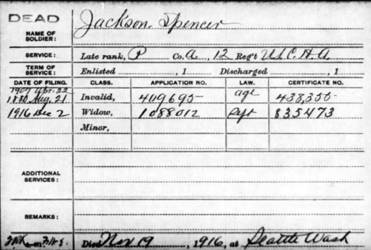 DEAD
NAME OF SOLDIER: Jackson, Spencer
SERVICE: Late rank, P Co. A, 12 Reg't U.S.C.H.A.
TERM OF SERVICE: Enlisted , 1 Discharged , 1
DATE OF FILING. CLASS. APPLICATION NO. LAW. CERTIFICATE NO.
1907 Apr. 22
1880 Aug. 21 Invalid, 409695 age
1916 Dec 2 Widow, 1088012 835473
Minor,
ADDITIONAL SERVICES:
REMARKS:
Died Nov 19, 1916, at Seattle Wash